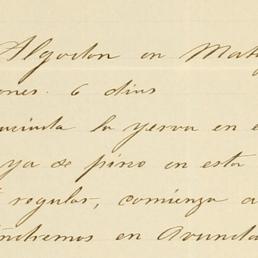 Algodon en Mat
ones. 6 dias
la yerva en e
ya de pino en esta
regular, comienza a
ndremos en Avunda